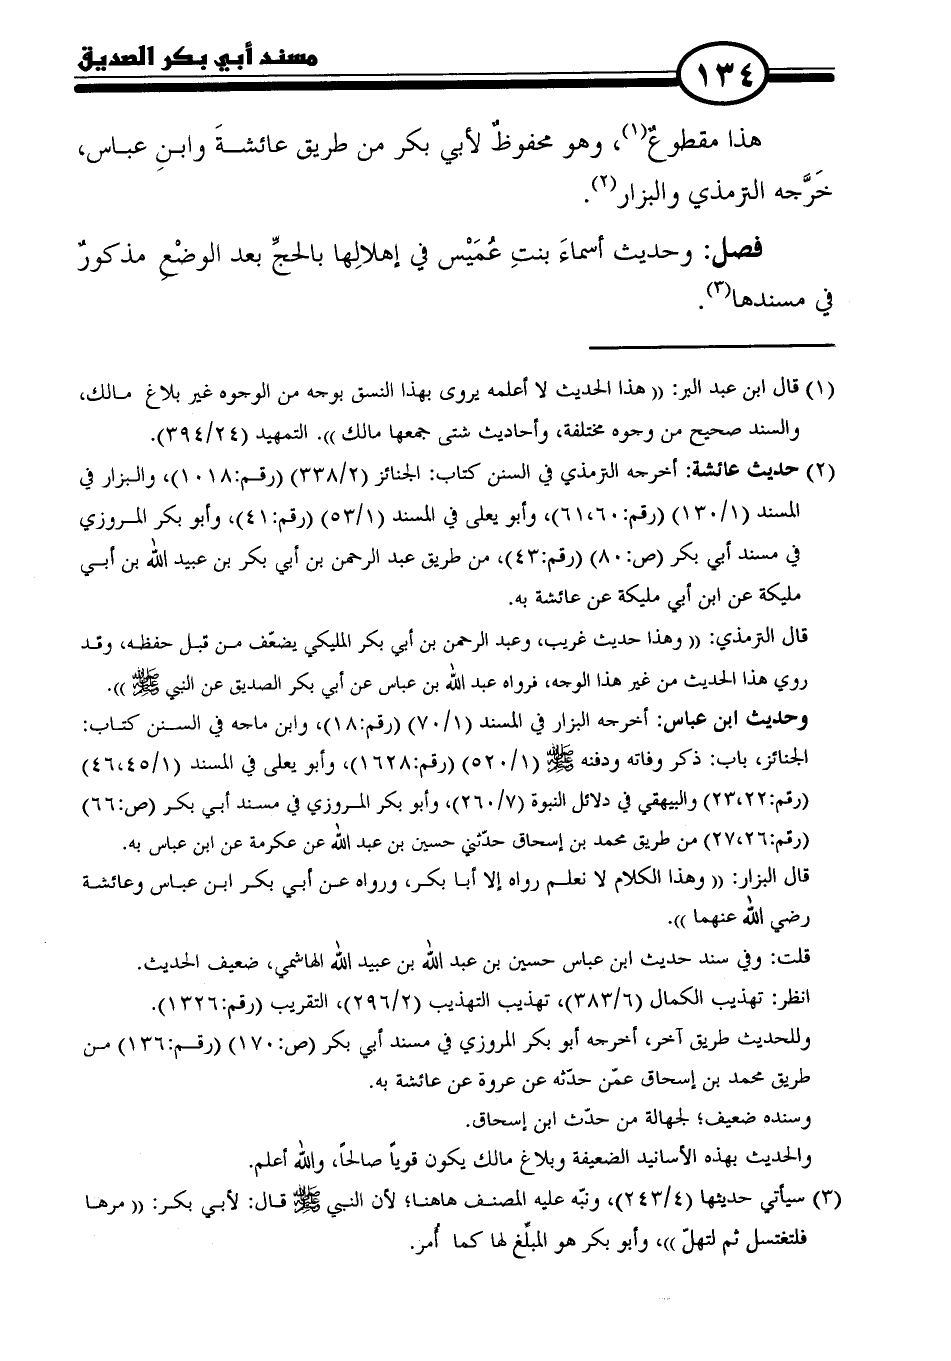 مسند أبي بكر الصديق
١٣٤
هذا مقطوعٌ(١)، وهو محفوظٌ لأبي بكر من طريق عائشةَ وابنِ عباس،
خَرَّجه الترمذي والبزار(٢).
فصل: وحديث أسماءَ بنتِ عُمَيْس في إهلالِها بالحجِّ بعد الوضْعِ مذكورٌ
في مسندها(٣).
(١) قال ابن عبد البر: (( هذا الحديث لا أعلمه يروى بهذا النسق بوجه من الوجوه غير بلاغ مالك،
والسند صحيح من وجوه مختلفة، وأحاديث شتى جمعها مالك )). التمهيد (٣٩٤/٢٤).
(٢) حديث عائشة: أخرجه الترمذي في السنن كتاب: الجنائز (٣٣٨/٢) (رقم:١٠١٨)، والبزار في
المسند (١٣٠/١) (رقم:٦١،٦٠)، وأبو يعلى في المسند (٥٣/١) (رقم:٤١)، وأبو بكر المروزي
في مسند أبي بكر (ص:٨٠) (رقم:٤٣)، من طريق عبد الرحمن بن أبي بكر بن عبيد الله بن أبي
مليكة عن ابن أبي مليكة عن عائشة به.
قال الترمذي: (( وهذا حديث غريب، وعبد الرحمن بن أبي بكر المليكي يضعّف من قبل حفظه، وقد
روي هذا الحديث من غير هذا الوجه، فرواه عبد الله بن عباس عن أبي بكر الصديق عن النبي ﷺ )).
وحديث ابن عباس: أخرجه البزار في المسند (٧٠/١) (رقم:١٨)، وابن ماجه في السنن كتاب:
الجنائز، باب: ذكر وفاته ودفنه ﷺ (٥٢٠/١) (رقم:١٦٢٨)، وأبو يعلى في المسند (٤٦،٤٥/١)
(رقم:٢٣،٢٢) والبيهقي في دلائل النبوة (٢٦٠/٧)، وأبو بكر المروزي في مسند أبي بكر (ص:٦٦)
(رقم:٢٧،٢٦) من طريق محمد بن إسحاق حدّثني حسين بن عبد الله عن عكرمة عن ابن عباس به.
قال البزار: (( وهذا الكلام لا نعلم رواه إلا أبا بكر، ورواه عن أبي بكر ابن عباس وعائشة
رضي الله عنهما )).
قلت: وفي سند حديث ابن عباس حسين بن عبد الله بن عبيد الله الهاشمي، ضعيف الحديث.
انظر: تهذيب الكمال (٣٨٣/٦)، تهذيب التهذيب (٢٩٦/٢)، التقريب (رقم:١٣٢٦).
وللحديث طريق آخر، أخرجه أبو بكر المروزي في مسند أبي بكر (ص:١٧٠) (رقم:١٣٦) من
طريق محمد بن إسحاق عمّن حدّثه عن عروة عن عائشة به.
وسنده ضعيف؛ لجهالة من حدّث ابن إسحاق.
والحديث بهذه الأسانيد الضعيفة وبلاغ مالك يكون قوياً صالحاً، والله أعلم.
(٣) سيأتي حديثها (٢٤٣/٤)، ونبّه عليه المصنف هاهنا؛ لأن النبي ﷺ قال: لأبي بكر: (( مرها
فلتغتسل ثم لتهلّ ))، وأبو بكر هو المبلِّغ لها كما أُمر.